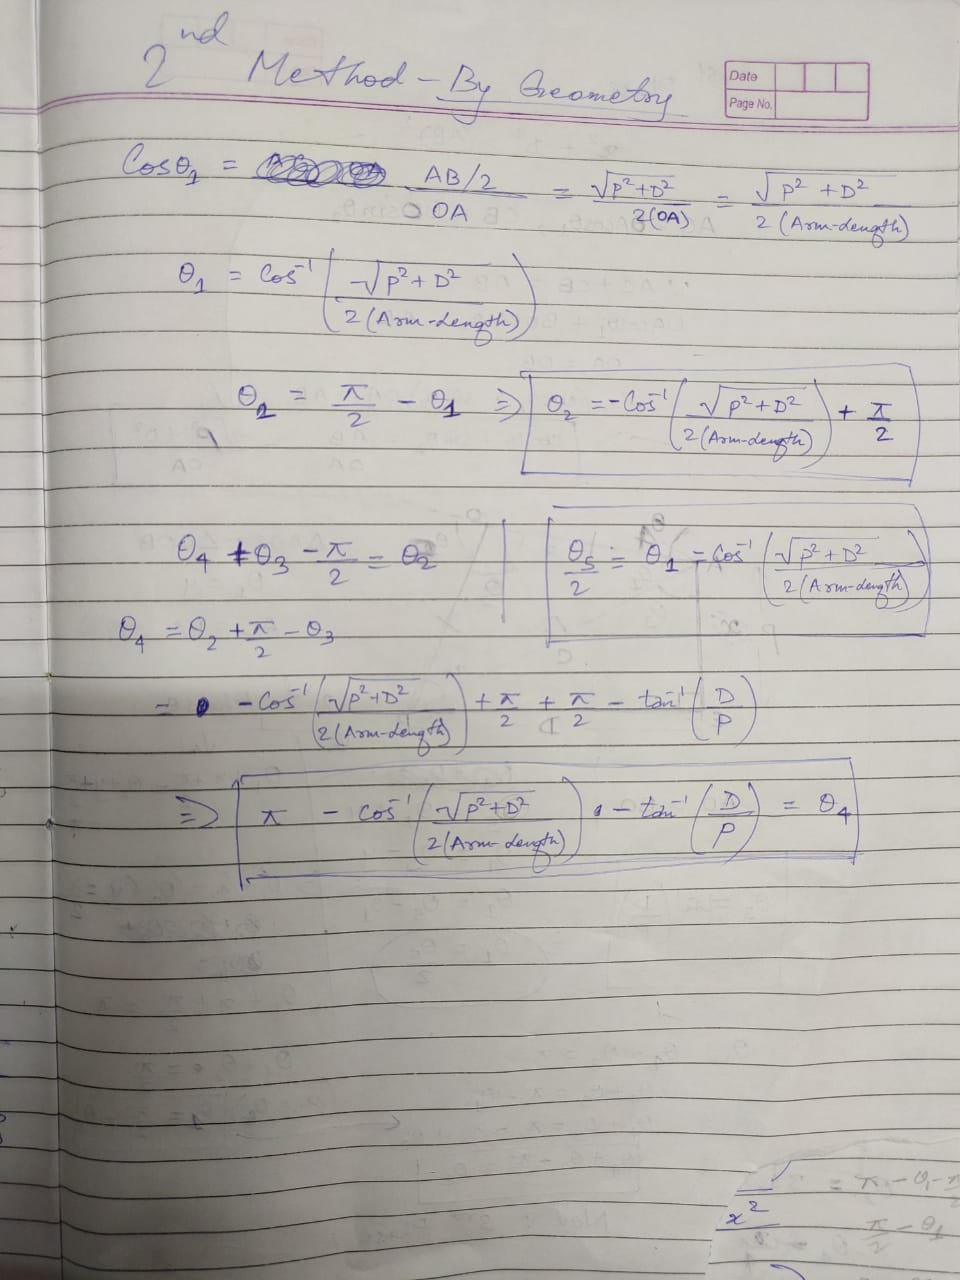 2nd Method - By Geometry
Date
Page No.
Cosθ₁ = AB/2 / OA = √(P²+D²) / 2(OA) = √(P²+D²) / 2(Arm-Length)
θ₁ = Cos⁻¹ ( √(P²+D²) / 2(Arm-Length) )
θ₂ = π/2 - θ₁ ⇒ θ₂ = -Cos⁻¹ ( √(P²+D²) / 2(Arm-Length) ) + π/2
θ₄ + θ₃ - π/2 = θ₂
θ₅/2 = θ₁ = Cos⁻¹ ( √(P²+D²) / 2(Arm-Length) )
θ₄ = θ₂ + π/2 - θ₃
= - Cos⁻¹ ( √(P²+D²) / 2(Arm-Length) ) + π/2 + π/2 - tan⁻¹ ( D/P )
⇒ π - Cos⁻¹ ( √(P²+D²) / 2(Arm-Length) ) - tan⁻¹ ( D/P ) = θ₄
x²